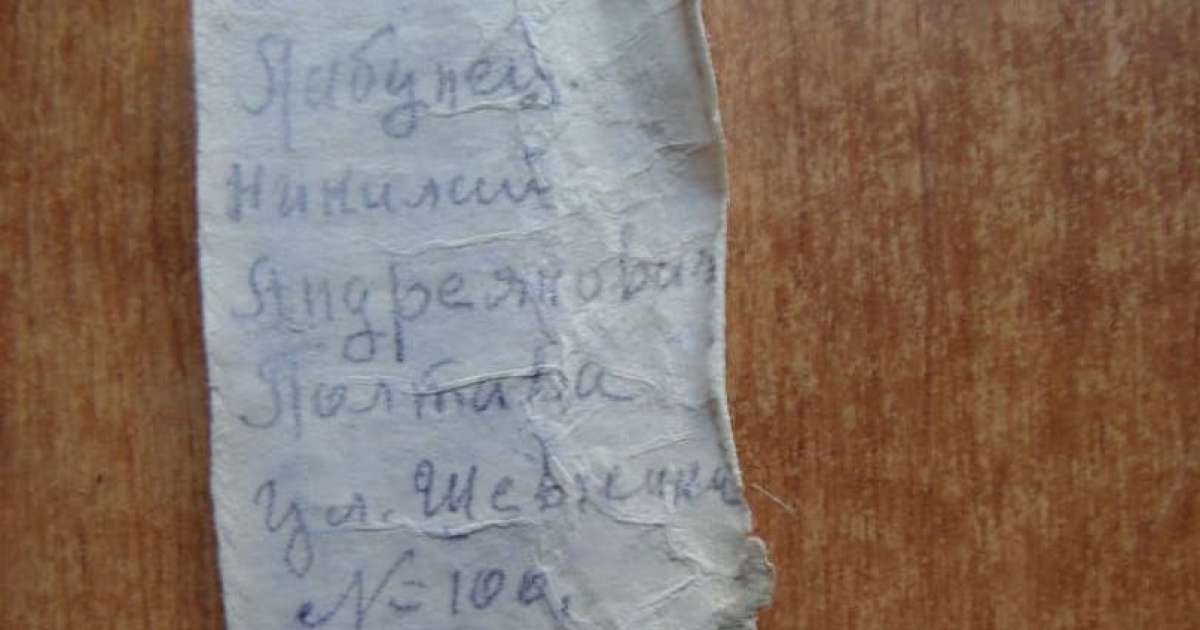 Пабунец.
Нинилий
Андреянович
Полтава
Ул. Шевченка
№=10а.